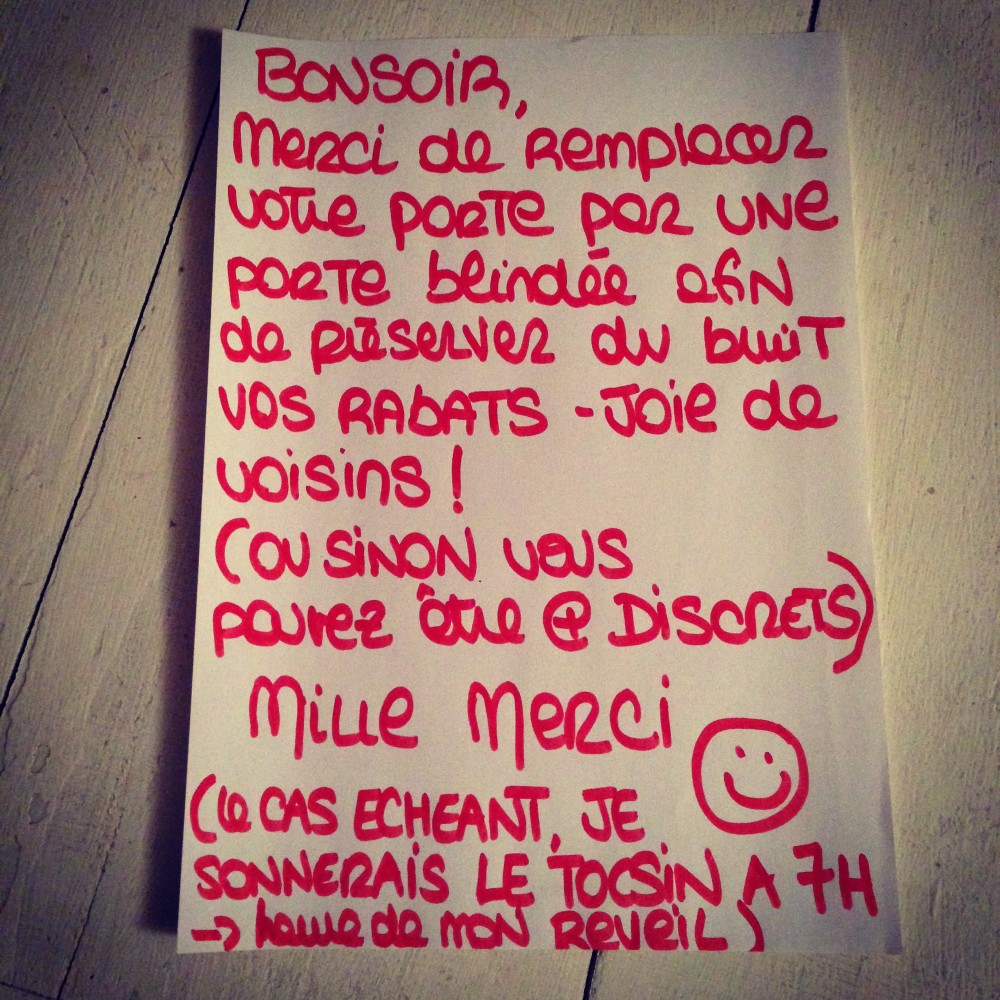 BONSOIR,
Merci de remplacer
votre porte par une
porte blindée afin
de préserver du bruit
vos RABATS - Joie de
voisins !
(ou sinon vous
pouvez être @ DISCRETS)
Mille Merci
(le CAS ECHEANT, JE
SONNERAIS LE TOCSIN A 7H
→ heure de mon REVEIL)